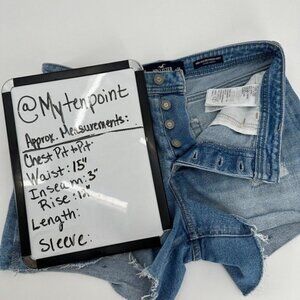 @Mytenpoint
Approx. Measurements:
Chest Pit to Pit:
Waist: 15"
Inseam: 3"
Rise:
Length:
Sleeve:
HOLLISTER